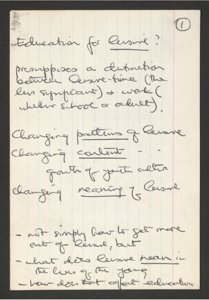 1
Education for leisure?
presupposes a distinction
between leisure-time (the
less significant) & work (
whether school or adult).
Changing patterns of leisure
Changing content " "
growth of youth culture
Changing meaning of leisure
- not simply how to get more
out of leisure, but
- what does leisure mean in
the lives of the young
- how does that affect education